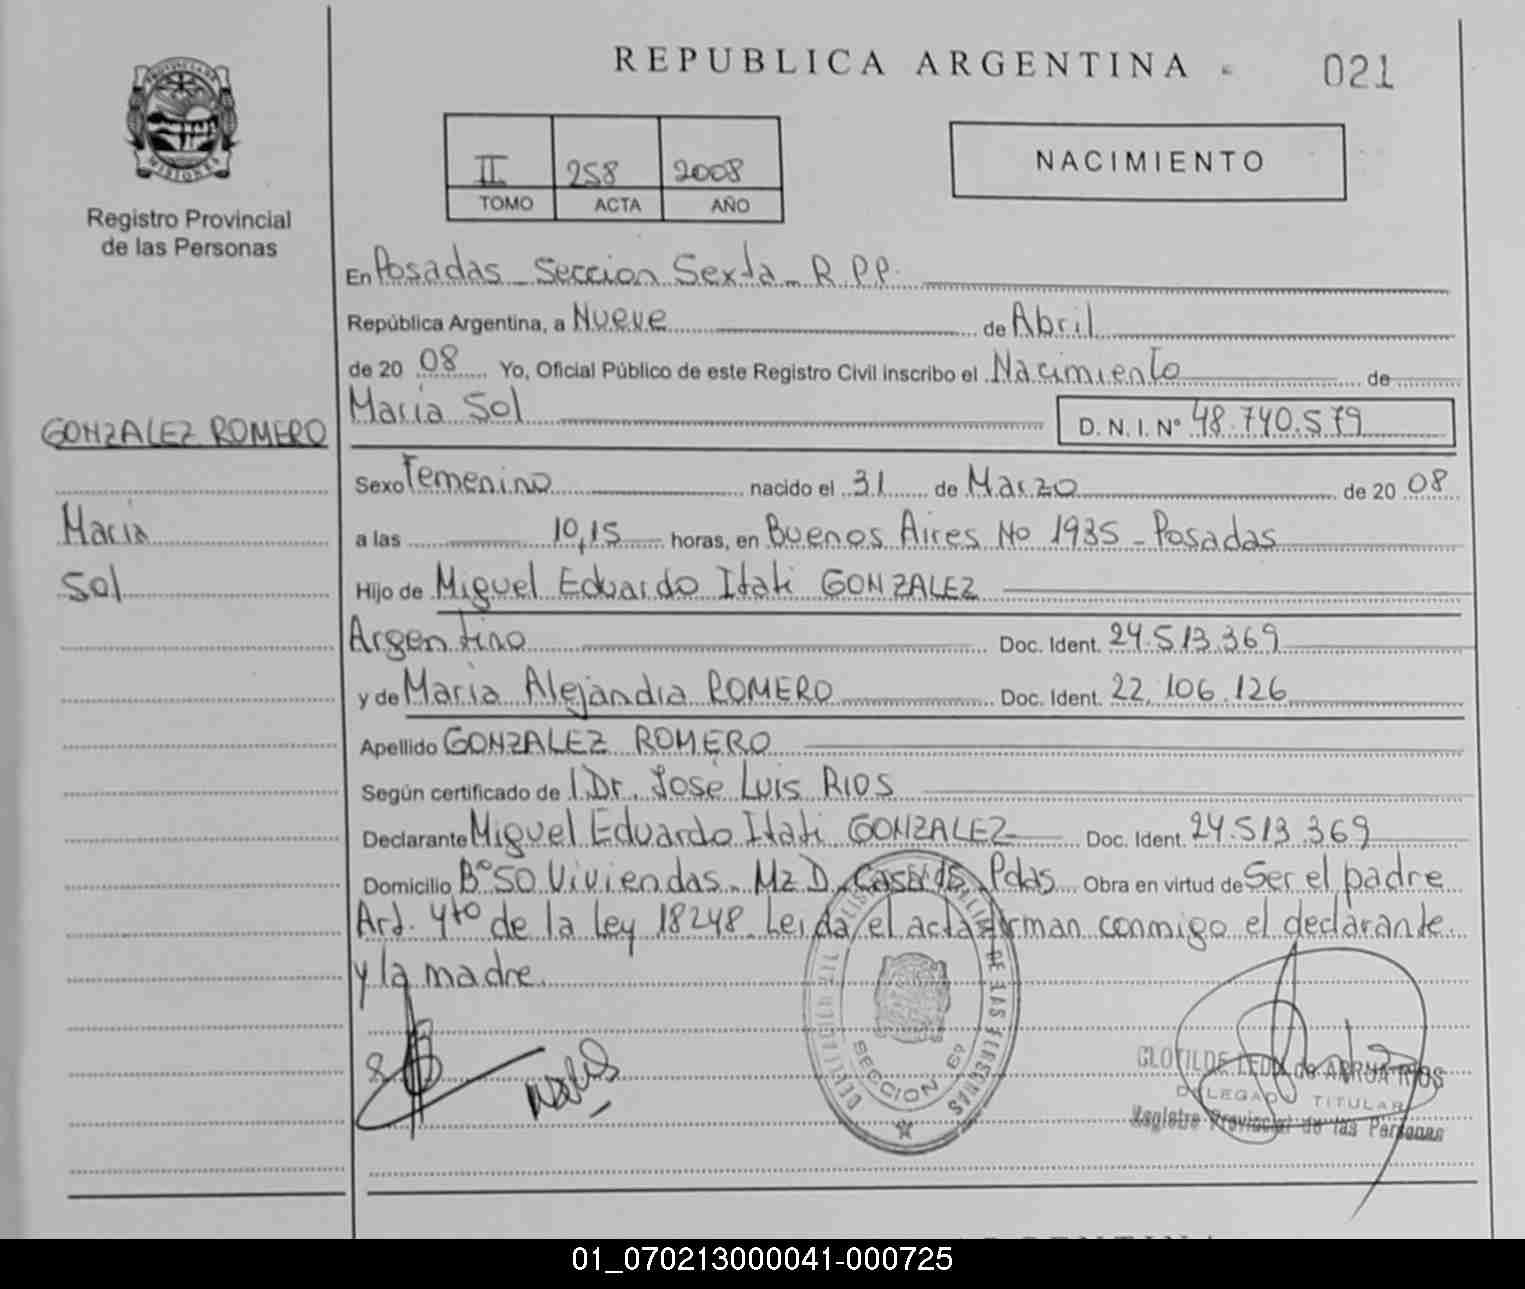 REPUBLICA ARGENTINA
021
PROVINCIA DE
MISIONES
Registro Provincial
de las Personas
II 258 2008
TOMO ACTA AÑO
NACIMIENTO
En Posadas Seccion Sexta R.P.P.
República Argentina, a Nueve de Abril
de 20 08 Yo, Oficial Público de este Registro Civil inscribo el Nacimiento de
María Sol
D. N. I. N° 48.740.579
GONZALEZ ROMERO
María
Sol
Sexo Femenino nacido el 31 de Marzo de 20 08
a las 10,15 horas, en Buenos Aires No 1935 - Posadas
Hijo de Miguel Eduardo Itati GONZALEZ
Argentino Doc. Ident. 24.513.369
y de María Alejandra ROMERO Doc. Ident. 22.106.126
Apellido GONZALEZ ROMERO
Según certificado de 1. Dr. José Luis RIOS
Declarante Miguel Eduardo Itati GONZALEZ Doc. Ident. 24.513.369
Domicilio B° 50 Viviendas. Mz D. Casa Pdas Obra en virtud de Ser el padre
Art. 4to de la Ley 18248. Leida el acta firman conmigo el declarante
y la madre.
DE LAS PERSONAS
SECCION 6ª
CLOTILDE de ARRUA RIOS
DELEGADO TITULAR
Registro Provincial de las Personas
01_070213000041-000725